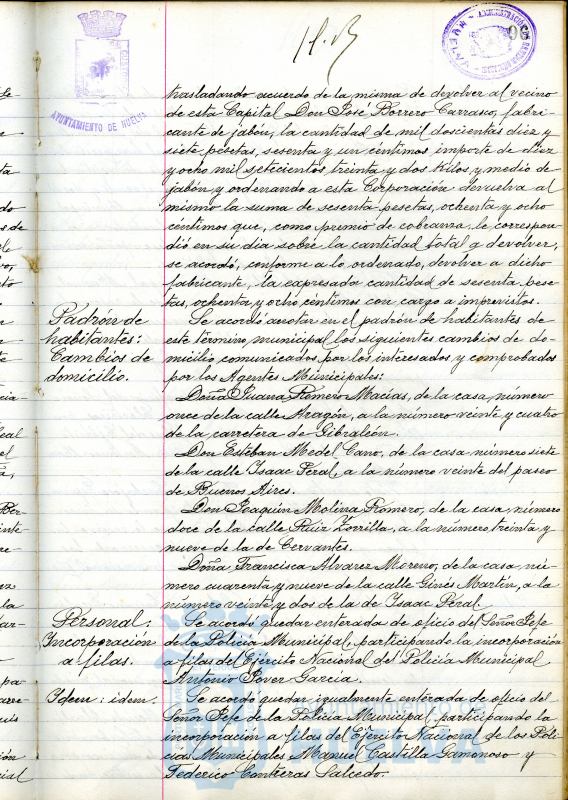 AYUNTAMIENTO DE HUELVA
trasladando acuerdo de la misma de devolver al vecino
de esta Capital Don José Borrero Carrasco, fabri-
cante de jabón, la cantidad de mil doscientas diez y
siete pesetas, sesenta y un céntimos importe de diez
y ocho mil setecientos treinta y dos kilos y medio de
jabón y ordenando a esta Corporación devuelva al
mismo la suma de sesenta pesetas, ochenta y ocho
céntimos que, como premio de cobranza, le correspon-
dió en su dia sobre la cantidad total q devolver,
se acordó, conforme a lo ordenado, devolver a dicho
fabricante, la expresada cantidad de sesenta pese-
tas, ochenta y ocho céntimos con cargo a imprevistos.
Padrón de
habitantes:
Cambios de
domicilio.
Se acordó anotar en el padrón de habitantes de
este término municipal los siguientes cambios de do-
micilio comunicados por los interesados y comprobados
por los Agentes Municipales:
Doña Juana Romero Macías, de la casa número
once de la calle Aragón, a la número veinte y cuatro
de la carretera de Gibraleón.
Don Esteban Medel Cano, de la casa número siete
de la calle Isaac Peral, a la número veinte del paseo
de Buenos Aires.
Don Joaquin Molina Romero, de la casa, número
doce de la calle Ruiz Zorrilla, a la número, treinta y
nueve de la de Cervantes.
Doña Francisca Alvarez Moreno, de la casa nú-
mero cuarenta y nueve de la calle Ginés Martín, a la
número veinte y dos de la de Isaac Peral.
Personal:
Incorporación
a filas.
Se acordó quedar enterada de oficio del Señor Jefe
de la Policía Municipal, participando la incorporación
a filas del Ejército Nacional del Policía Municipal
Antonio Rover Garcia.
Idem: idem.
Se acordó quedar igualmente enterada de oficio del
Señor Jefe de la Policía Municipal, participando la
incorporación a filas del Ejército Nacional de los Poli-
cías Municipales Manuel Castilla Gamonoso y
Federico Contreras Salcedo.